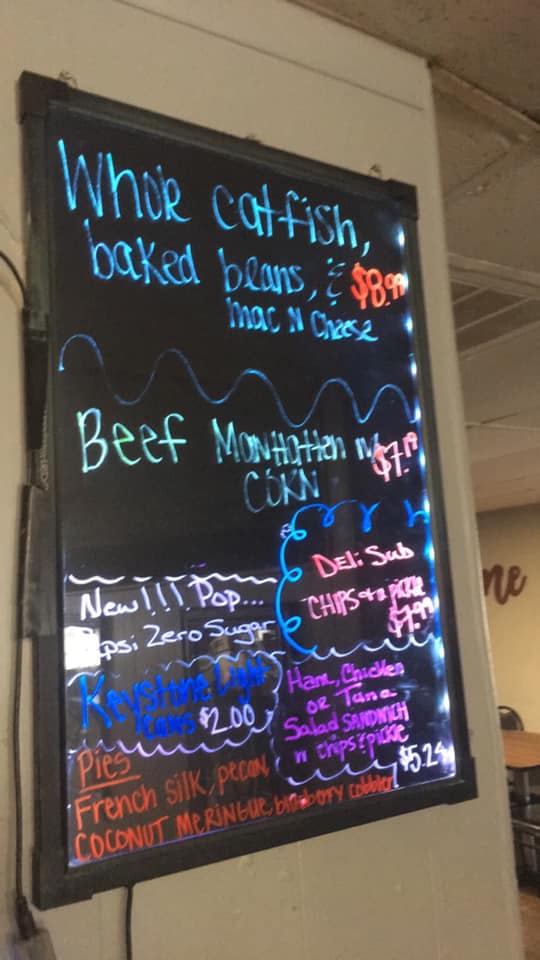 Whole catfish,
baked beans, &
mac N Cheese
$8.99
Beef Manhatten w/
CORN
$7.19
Deli Sub
CHIPS & a pickle
$7.99
New!!! Pop...
Pepsi Zero Sugar
Keystone Light
cans $2.00
Ham, Chicken
or Tuna
Salad SANDWICH
n chips & pickle
$5.24
Pies
French silk, pecan,
COCONUT MERINGUE, blueberry cobbler
me